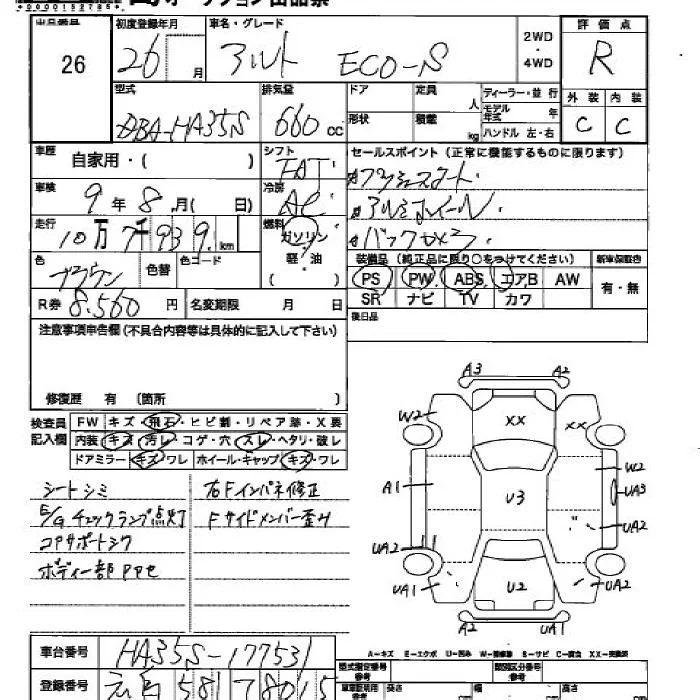 出品番号
26
初度登録年月
26 月
車名・グレード
アルト ECO-S
2WD・4WD
評価点
R
外装 内装
C C
型式
DBA-HA35S
排気量
660 cc
ドア
形状
定員 人
積載 kg
ディーラー・並行
モデル年式 年
ハンドル 左・右
車歴
自家用・( )
シフト
FAT
セールスポイント(正常に機能するものに限ります)
プッシュスタート
アルミホイール
バックカメラ
車検
9年8月( 日)
冷房
AC
走行
10万7千939 km
燃料
ガソリン・軽油
( )
色
ブラウン
色替
色コード
装備品(純正品に限り○をつけてください)
PS PW ABS エアB AW
SR ナビ TV カワ
新車保証書
有・無
R券 8,560 円
名変期限 月 日
後日品
注意事項申告欄(不具合内容等は具体的に記入して下さい)
修復歴 有 〔箇所
検査員記入欄
FW キズ・飛石・ヒビ割・リペア跡・X要
内装 キズ・汚レ・コゲ・穴・スレ・ヘタリ・破レ
ドアミラー キズ・ワレ ホイール・キャップ キズ・ワレ
シートシミ
E/Gチェックランプ点灯
コアサポートシワ
右Fインパネ修正
Fサイドメンバー歪み
A3 A2
W2 XX XX
A1 U3 W2
UA3
UA2
UA2
UA1 U2 UA2
A2 UA1
A-キズ E-エクボ U-凹み W-補修跡 S-サビ C-腐食 XX-交換済
車台番号
HA35S-177531
型式指定番号
類別区分番号
登録番号
581
長さ cm 幅 cm 高さ